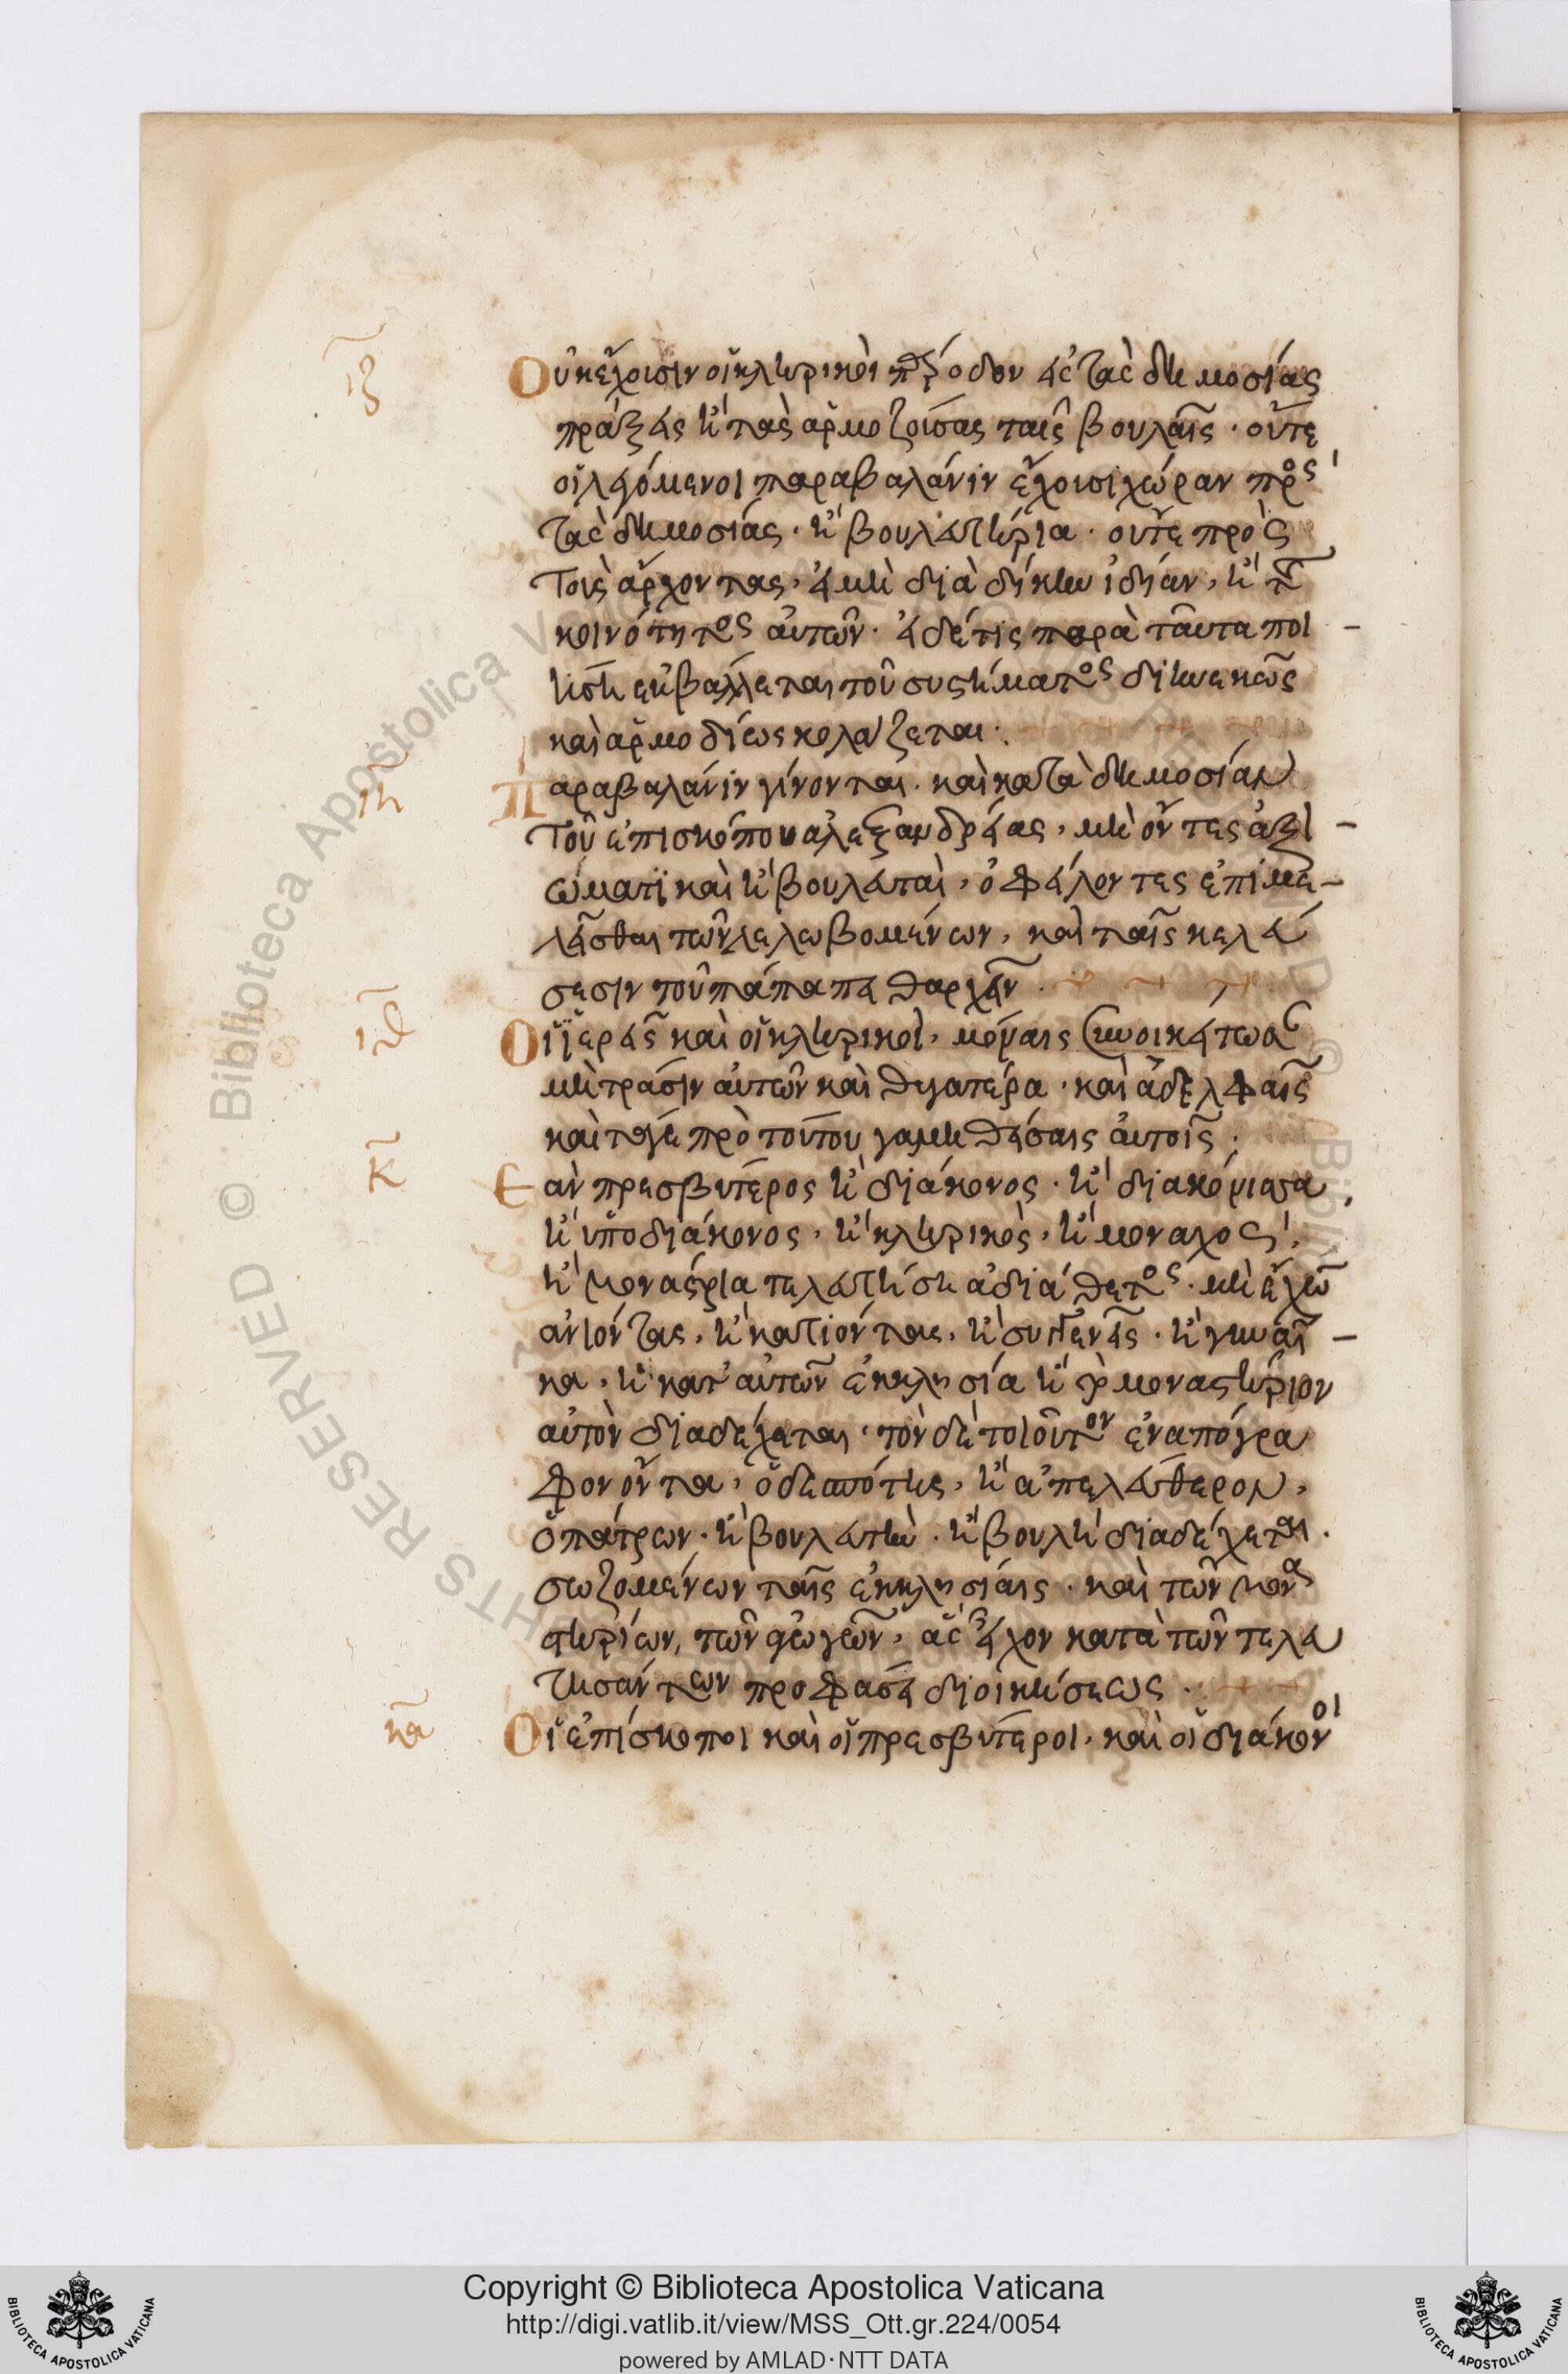 ιζ
Οὐκ ἔχουσιν οἱ κληρικοὶ πρόσοδον εἰς τὰς δημοσίας
πράξεις ἢ τὰς ἁρμοζούσας ταῖς βουλαῖς · οὔτε
οἱ λεγόμενοι παραβαλάνιν ἔχουσι χώραν πρὸς
τὰς δημοσίας · ἢ βουλευτήρια · οὔτε πρὸς
τοὺς ἄρχοντας, εἰ μὴ διὰ δίκην ἰδίαν, ἢ τῆς
κοινότητος αὐτῶν · εἰ δέ τις παρὰ ταῦτα ποι –
ήσῃ ἐκβάλλεται τοῦ συστήματος διηνεκῶς
καὶ ἁρμοδίως κολάζεται :
ιη
Παραβαλάνιν γίνονται · καὶ κατὰ δημοσίαν
τοῦ ἐπισκόπου ἀλεξανδρείας, μὴ ὄντες ἀξι –
ώματι καὶ ἢ βουλευταὶ, ὀφείλοντες ἐπιμε –
λεῖσθαι τῶν λελωβομένων, καὶ ταῖς κελεύ
σεσιν τοῦ πάπα πειθαρχεῖν ·
ιθ
Οἱ ἱερεῖς καὶ οἱ κληρικοὶ, μόναις συνοικείτωσαν
μητράσιν αὐτῶν καὶ θυγατέρα · καὶ ἀδελφαῖς
καὶ ταῖς πρὸ τούτου γαμηθείσαις αὐτοῖς ·
κ
Ἐὰν πρεσβύτερος ἢ διάκονος · ἢ διακόνισσα,
ἢ ὑποδιάκονος, ἢ κληρικὸς, ἢ μοναχος,
ἢ μονάστρια τελευτήσῃ ἀδιάθετος · μὴ ἔχων
ἀνιόντας, ἢ κατιόντας, ἢ συγγενεῖς · ἢ γυναῖ –
κα, ἡ κατ' αὐτῶν ἐκκλησία ἢ τὸ μοναστήριον
αὐτὸν διαδέχεται · τὸν δὲ τοιοῦτον ἐναπόγρα
φον ὄντα, ὁ δεσπότης, ἢ ἀπελεύθερον,
ὁ πάτρων · ἢ βουλευτὴν · ἡ βουλὴ διαδέχεται ·
σωζομένων ταῖς ἐκκλησίαις · καὶ τῶν μονα
στηρίων, τῶν ἀγωγῶν, ἃς εἶχον κατὰ τῶν τελευ
τησάντων προφάσει διοικήσεως ·
κα
Οἱ ἐπίσκοποι καὶ οἱ πρεσβύτεροι, καὶ οἱ διάκονοι
Copyright © Biblioteca Apostolica Vaticana
http://digi.vatlib.it/view/MSS_Ott.gr.224/0054
powered by AMLAD·NTT DATA